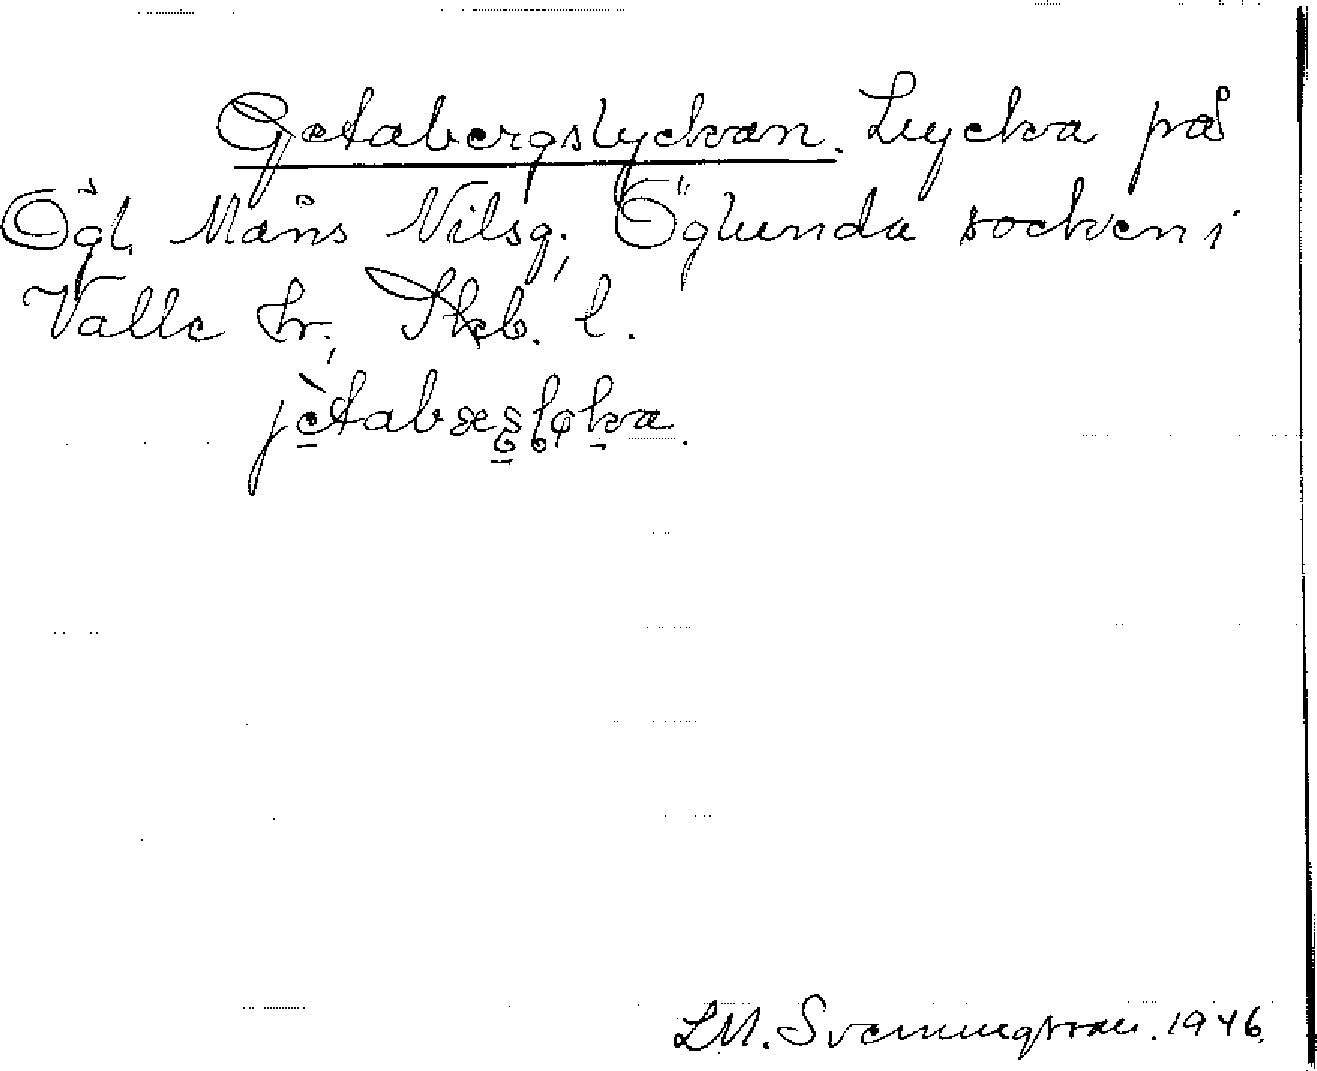 Getabergslyckan. Lycka på
Ögl. Måns Nilsg., Öglunda socken i
Valle hr., Skb. l.
L M. Svenningsson. 1946.